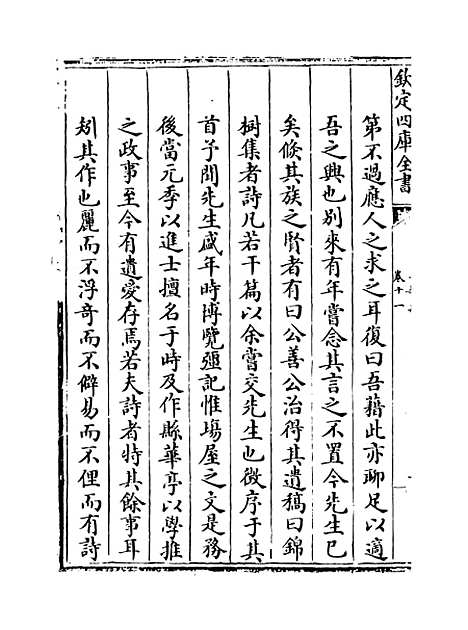 欽定四庫全書
卷十一
第不過應人之求之耳復曰吾藉此亦聊足以適
吾之興也别來有年嘗念其言之不置今先生已
矣倏其族之賢者有曰公善公治得其遺稿曰錦
樹集者詩凡若干篇以余嘗交先生也徵序于其
首予聞先生盛年時博覽彊記惟塲屋之文是務
後當元季以進士擅名于時及作縣華亭以學推
之政事至今有遺愛存焉若夫詩者特其餘事耳
矧其作也麗而不浮奇而不僻易而不俚而有詩